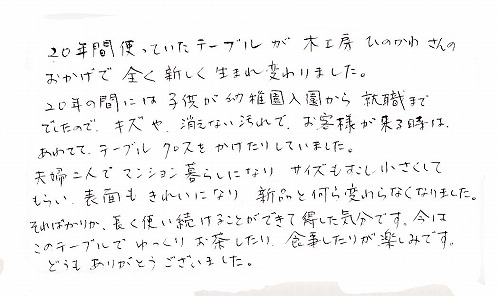 20年間使っていたテーブルが 木工房 ひのかわ さんの
おかげで 全く新しく生まれ変わりました。
20年の間には 子供が幼稚園入園から 就職まで
でしたので、キズや、消えない汚れで、お客様が来る時は、
あわてて、テーブルクロスをかけたりしていました。
夫婦二人でマンション暮らしになり サイズもすこし小さくして
もらい、表面もきれいになり 新品と何ら変わらなくなりました。
そればかりか、長く使い続けることができて得した気分です。今は
このテーブルで ゆっくり お茶したり、食事したりが楽しみです。
どうもありがとうございました。